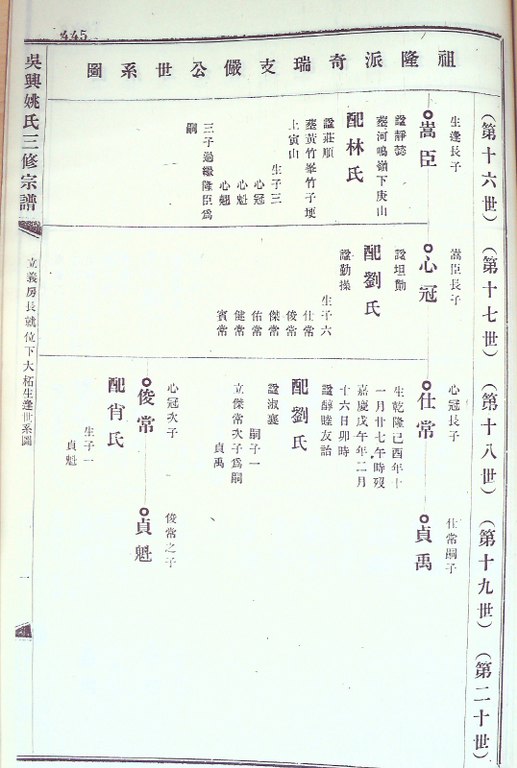 445
祖隆派奇瑞支儼公世系圖
吳興姚氏三修宗譜
立義房長就位下大柘生逢世系圖
一
(第十六世)
生逢長子
嵩臣
諡靜懿
墓河鳴嶺下庚山
配林氏
諡莊順
墓黃竹峯竹子埂
上寅山
生子三
心冠
心魁
心翹
三子過繼隆臣爲
嗣
(第十七世)
嵩臣長子
心冠
諡坦勳
配劉氏
諡勤操
生子六
仕常
俊常
傑常
佑常
健常
賓常
(第十八世)
心冠長子
仕常
生乾隆己酉年十
一月廿七午時歿
嘉慶戊午年二月
十六日卯時
諡醇睦友詒
配劉氏
諡淑襄
嗣子一
立傑常次子爲嗣
貞禹
心冠次子
俊常
配肖氏
生子一
貞魁
(第十九世)
仕常嗣子
貞禹
俊常之子
貞魁
(第二十世)